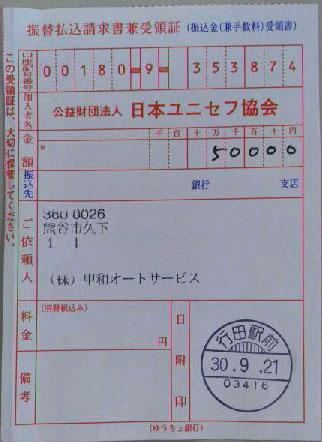 振替払込請求書兼受領証 (振込金(兼手数料)受領書)
この受領証は、大切に保管してください。
口座記号番号
00180-9-353874
加入者名
公益財団法人 日本ユニセフ協会
金額
千 百 十 万 千 百 十 円
50000
振込先
銀行 支店
ご依頼人
360 0026
熊谷市久下
1 1
(株)甲和オートサービス
料金
(消費税込み)
円
備考
日附印
行田駅前
30.9.21
03416
(ゆうちょ銀行)